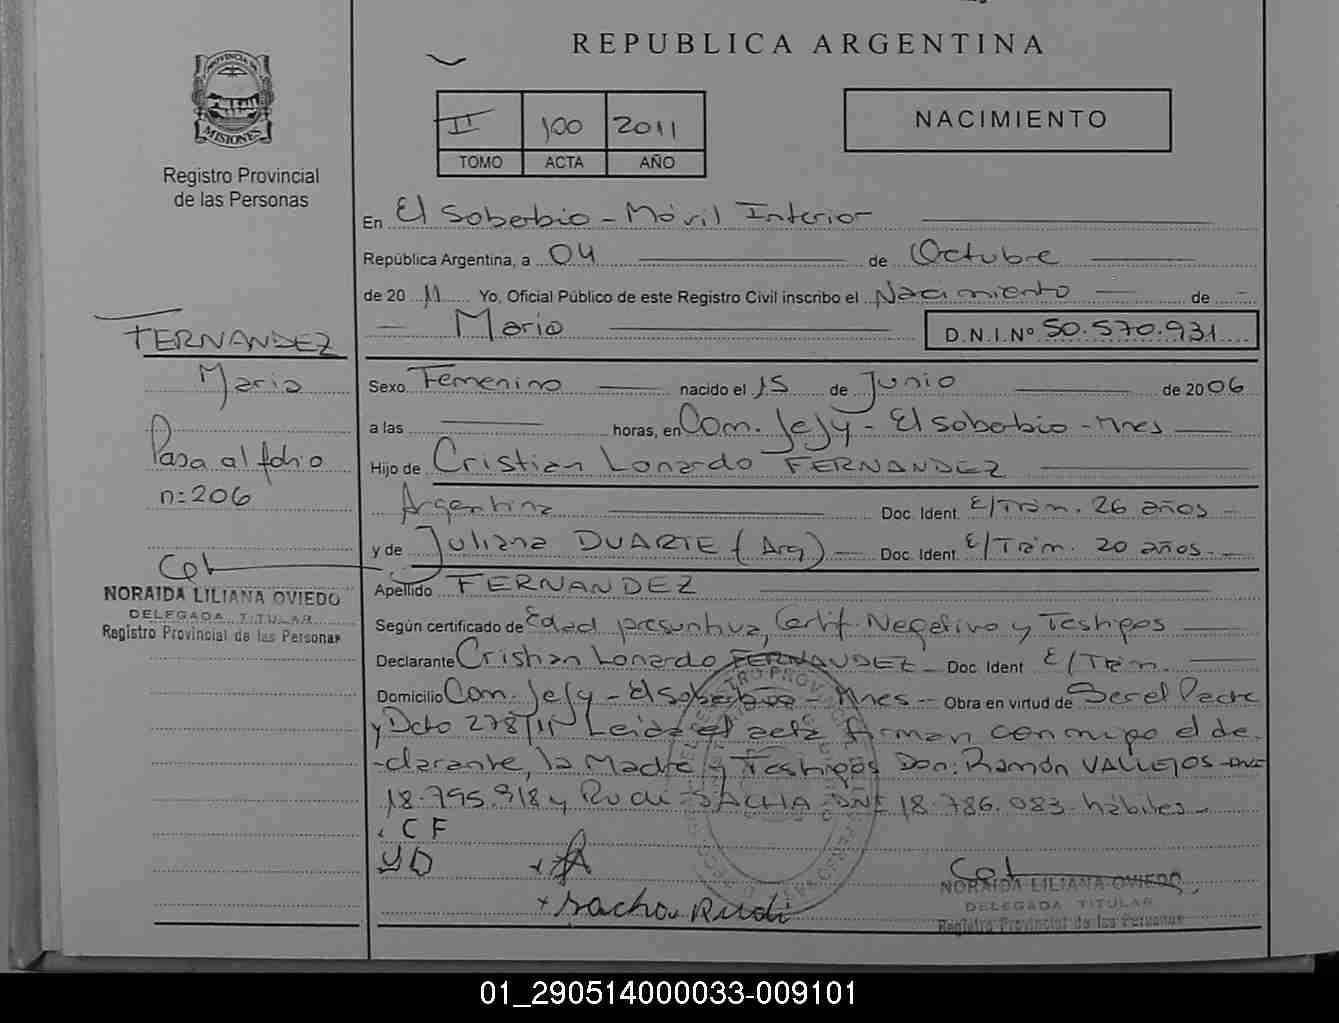 REPUBLICA ARGENTINA
PROVINCIA DE
MISIONES
Registro Provincial
de las Personas
II 100 2011
TOMO ACTA AÑO
NACIMIENTO
En El Soberbio - Móvil Interior
República Argentina, a 04 de Octubre
de 20 11 Yo, Oficial Público de este Registro Civil inscribo el Nacimiento de
Maria D.N.I.Nº 50.570.931
FERNANDEZ
Maria
Pasa al folio
n: 206
NORAIDA LILIANA OVIEDO
DELEGADA TITULAR
Registro Provincial de las Personas
Sexo Femenino nacido el 15 de Junio de 2006
a las horas, en Com. Jejy - El Soberbio - Mnes
Hijo de Cristian Lonardo FERNANDEZ
Argentina Doc. Ident. E/Trám. 26 años
y de Juliana DUARTE (Arg) Doc. Ident. E/Trám. 20 años
Apellido FERNANDEZ
Según certificado de Edad presuntiva, Certif. Negativo y Testigos
Declarante Cristian Lonardo FERNANDEZ Doc. Ident E/Trám.
Domicilio Com. Jejy - El Soberbio - Mnes - Obra en virtud de Ser el Padre
y Dcto 278/11 Leida el acta firman conmigo el de-
clarante, la Madre y Testigos Don: Ramón VALLEJOS DNI
18.795.918 y Rudi SACHA DNI 18.786.083 hábiles
CF
YD
+ sacha Rudi
NORAIDA LILIANA OVIEDO
DELEGADA TITULAR
Registro Provincial de las Personas
01_290514000033-009101